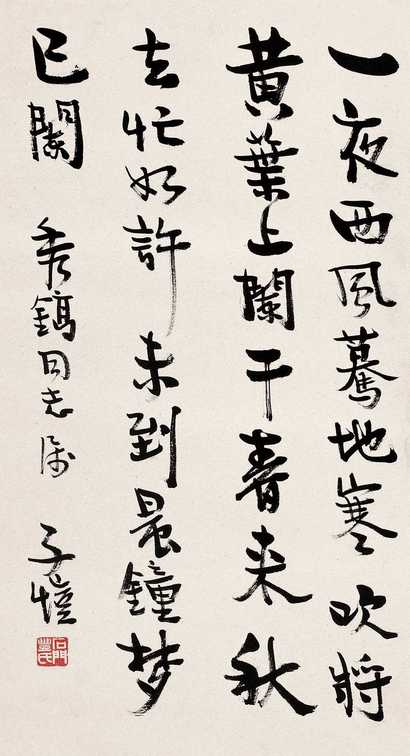 一夜西風驀地寒吹將
黄葉上闌干春来秋
去忙如許未到晨鐘梦
已闌 秀同志属 子愷
石門豐氏